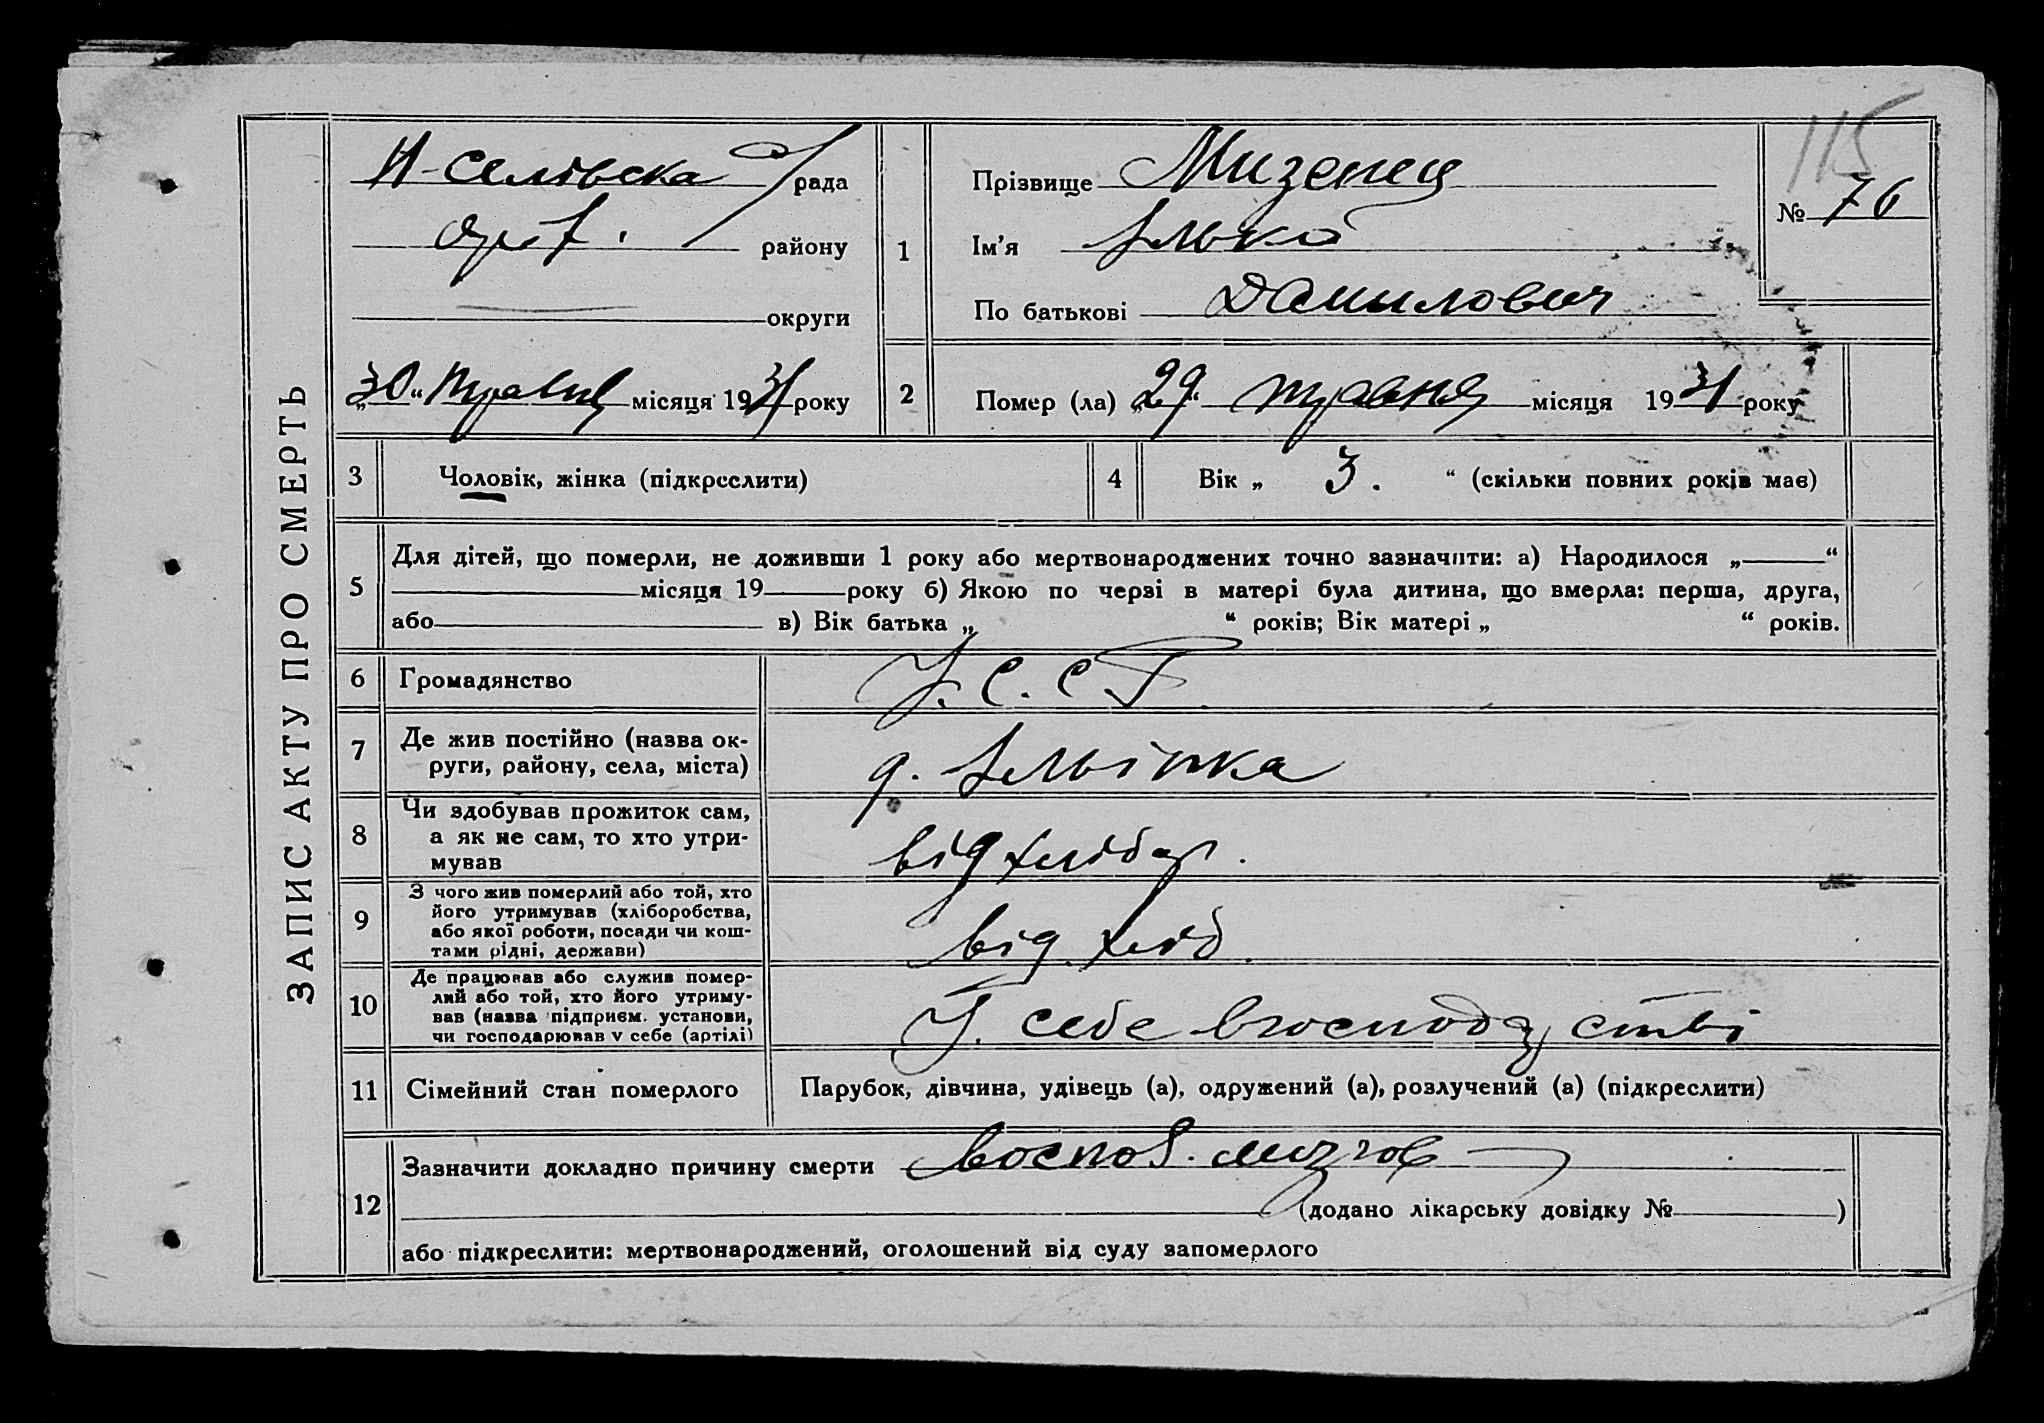 ЗАПИС АКТУ ПРО СМЕРТЬ
115
Н-Селівська с/рада
району
округи
„30“ Травня місяця 1931 року
1
Прізвище Мизенец
Ім'я Ілько
По батькові Данилович
№ 76
2
Помер (ла) „29“ травня місяця 1931 року
3
Чоловік, жінка (підкреслити)
4
Вік „ 3. “ (скільки повних років має)
5
Для дітей, що померли, не доживши 1 року або мертвонароджених точно зазначити: а) Народилося „——“
місяця 19——року б) Якою по черзі в матері була дитина, що вмерла: перша, друга,
або—— в) Вік батька „ “ років; Вік матері „ “ років.
6
Громадянство
У.С.С.Р.
7
Де жив постійно (назва ок-
руги, району, села, міста)
д. Ільінка
8
Чи здобував прожиток сам,
а як не сам, то хто утри-
мував
від хлібор.
9
З чого жив померлий або той, хто
його утримував (хліборобства,
або якої роботи, посади чи кош-
тами рідні, держави)
від. хліб.
10
Де працював або служив помер-
лий або той, хто його утриму-
вав (назва підприєм. установи,
чи господарював у себе (артілі)
У. себе в господарстві
11
Сімейний стан померлого
Парубок, дівчина, удівець (а), одружений (а), розлучений (а) (підкреслити)
12
Зазначити докладно причину смерти Воспол. мозгов
(додано лікарську довідку №——)
або підкреслити: мертвонароджений, оголошений від суду запомерлого